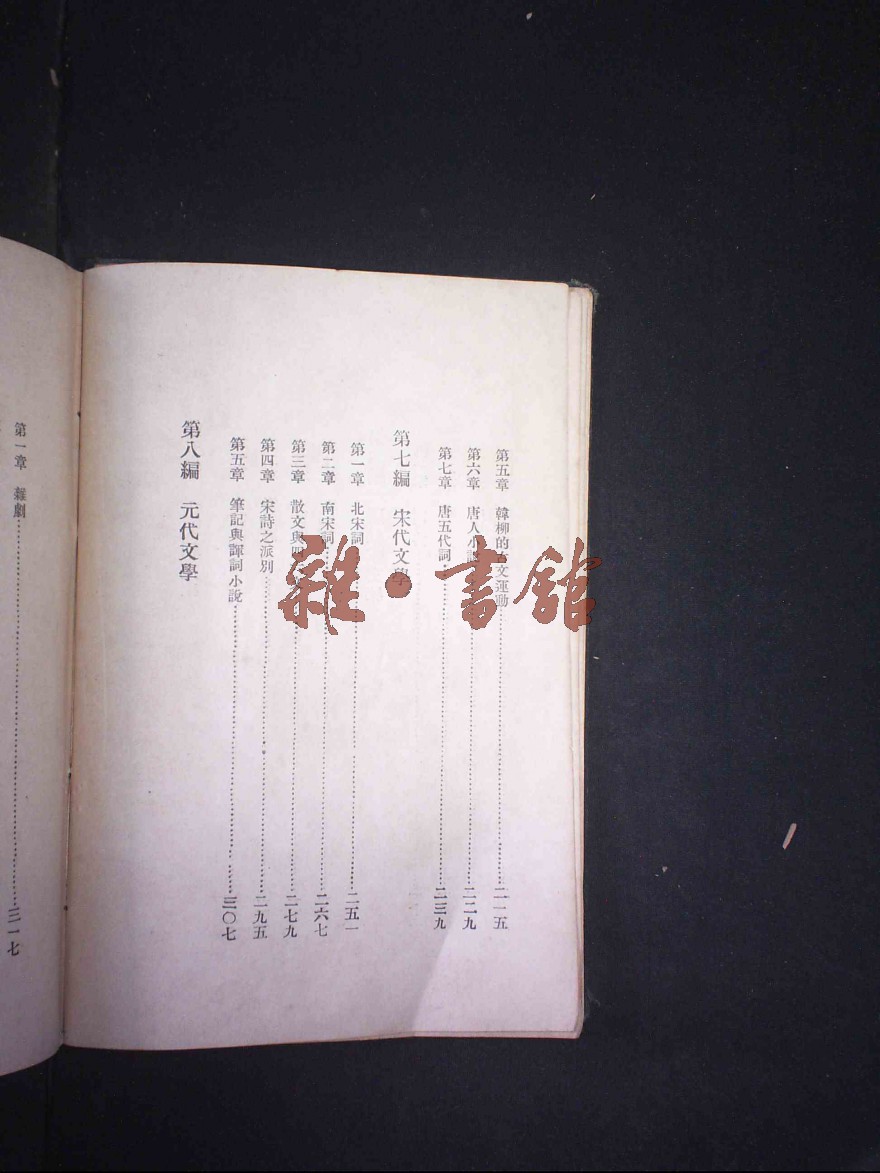 第五章 韓柳的古文運動……二一五
第六章 唐人小說……二二九
第七章 唐五代詞……二三九
第七編 宋代文學
第一章 北宋詞……二五一
第二章 南宋詞……二六七
第三章 散文與四……二七九
第四章 宋詩之派別……二九五
第五章 筆記與諢詞小說……三〇七
第八編 元代文學
第一章 雜劇……三一七
雜·書館